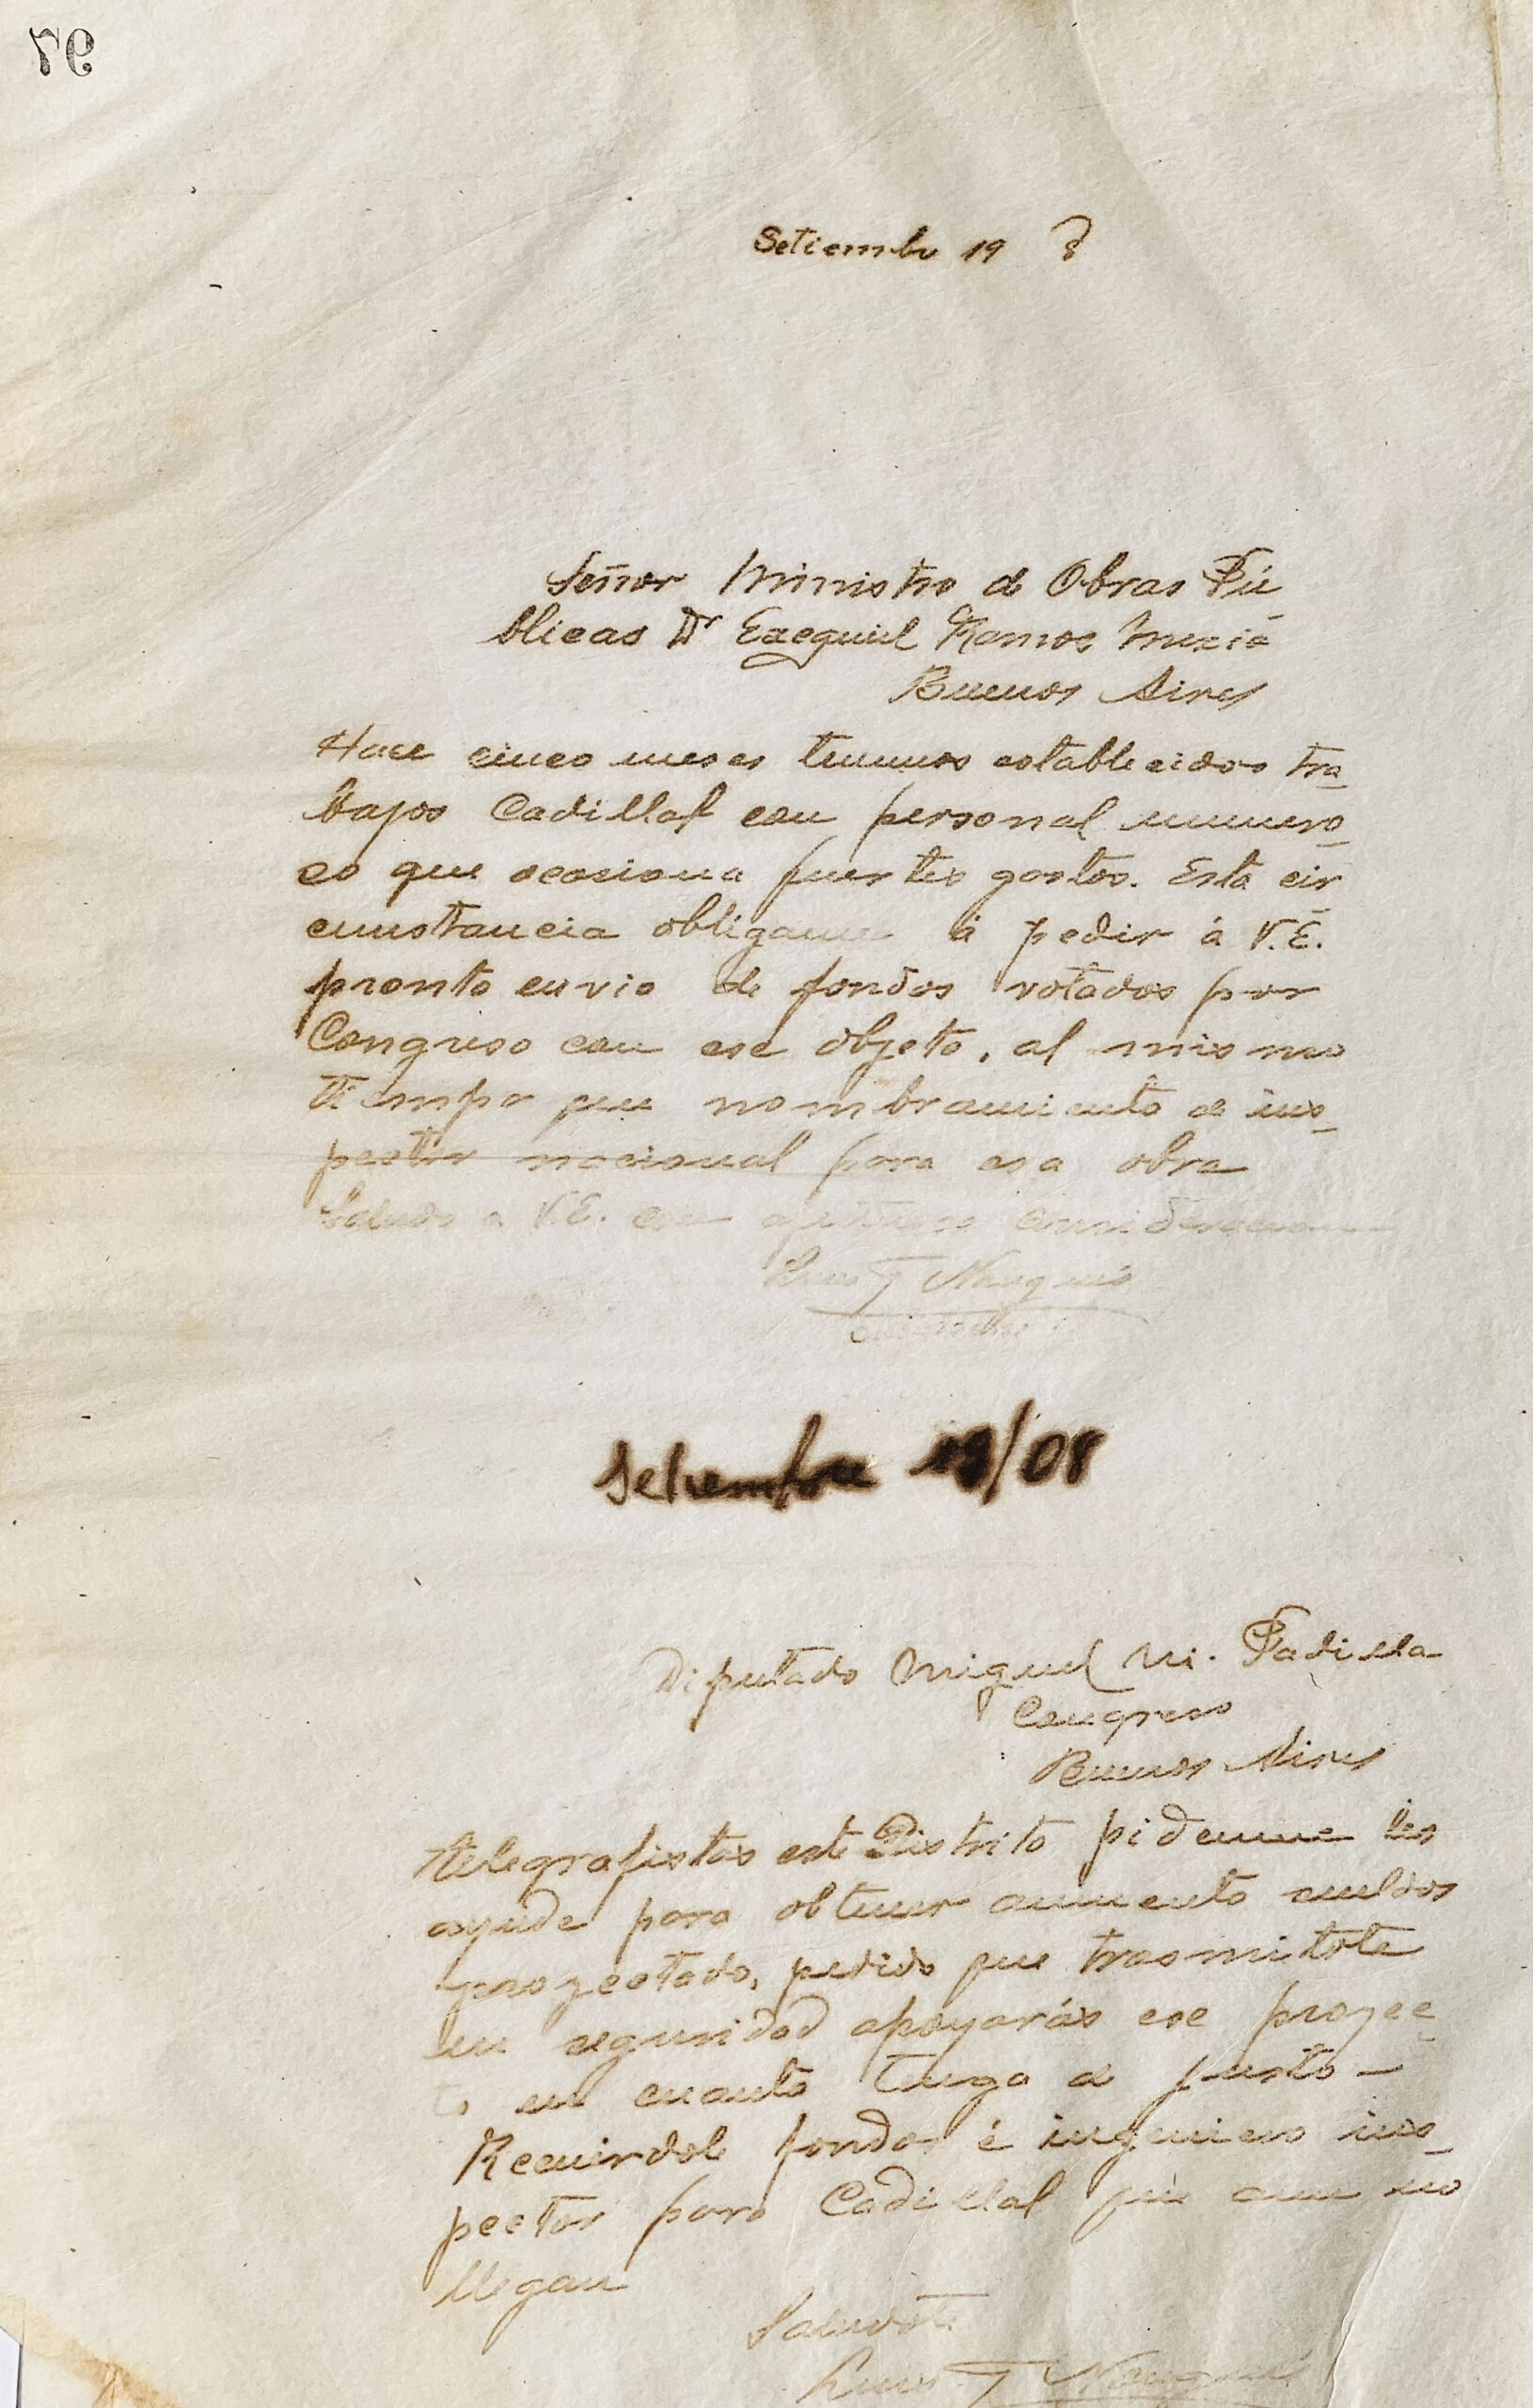 97
Setiembre 19 8
Señor Ministro de Obras Pú
blicas Dr Ezequiel Ramos Mexia
Buenos Aires
Hace cinco meses tenemos establecidos tra_
bajos Cadillal con personal numero_
so que ocasiona fuertes gastos. Esta cir
cunstancia obligame á pedir á V.E.
pronto envio de fondos votados por
Congreso con ese objeto, al mismo
tiempo que nombramiento de ins_
pector nacional para esa obra
Saludo a V.E. con consideracion
Luis F Nougués
Setiembre 19/08
Diputado Miguel M. Padilla
Congreso
Buenos Aires
Telegrafistas este Distrito pidenme les
ayude para obtener aumento sueldos
proyectado, pedido que trasmitote
en seguridad apoyarás ese proyec_
to en cuanto tenga de justo—
Recuerdole fondos é ingeniero ins_
pector para Cadillal que aun no
llegan
Saludote
Luis F Nougués